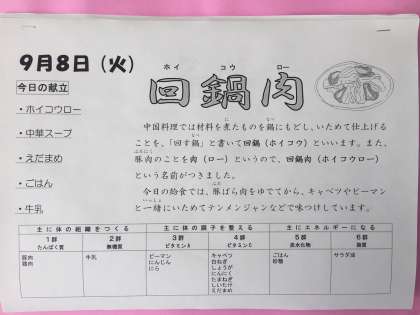 9月8日（火）
今日の献立
・ホイコウロー
・中華スープ
・えだまめ
・ごはん
・牛乳
ホイ コウ ロー
回鍋肉
中国料理では材料を煮たものを鍋にもどし、いためて仕上げる
ことを、「回す鍋」と書いて回鍋（ホイコウ）といいます。また、
豚肉のことを肉（ロー）というので、回鍋肉（ホイコウロー）
という名前がつきました。
今日の給食では、豚ばら肉をゆでてから、キャベツやピーマン
と一緒にいためてテンメンジャンなどで味つけしています。
主に体の組織をつくる 主に体の調子を整える 主にエネルギーになる
1群 2群 3群 4群 5群 6群
たんぱく質 無機質 ビタミンA ビタミンC 炭水化物 脂質
豚肉 牛乳 ピーマン キャベツ ごはん サラダ油
鶏肉 にんじん 白ねぎ 砂糖
にら しょうが
にんにく
たまねぎ
しいたけ
えだまめ